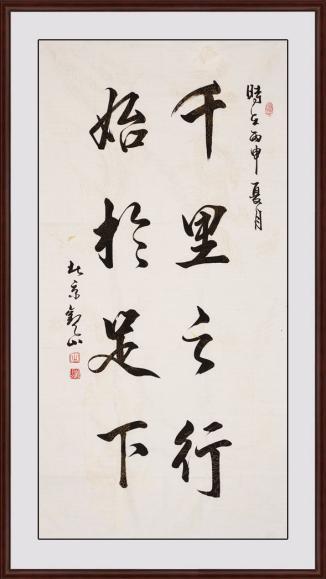 時在丙申夏月
千里之行
始於足下
北京觀山